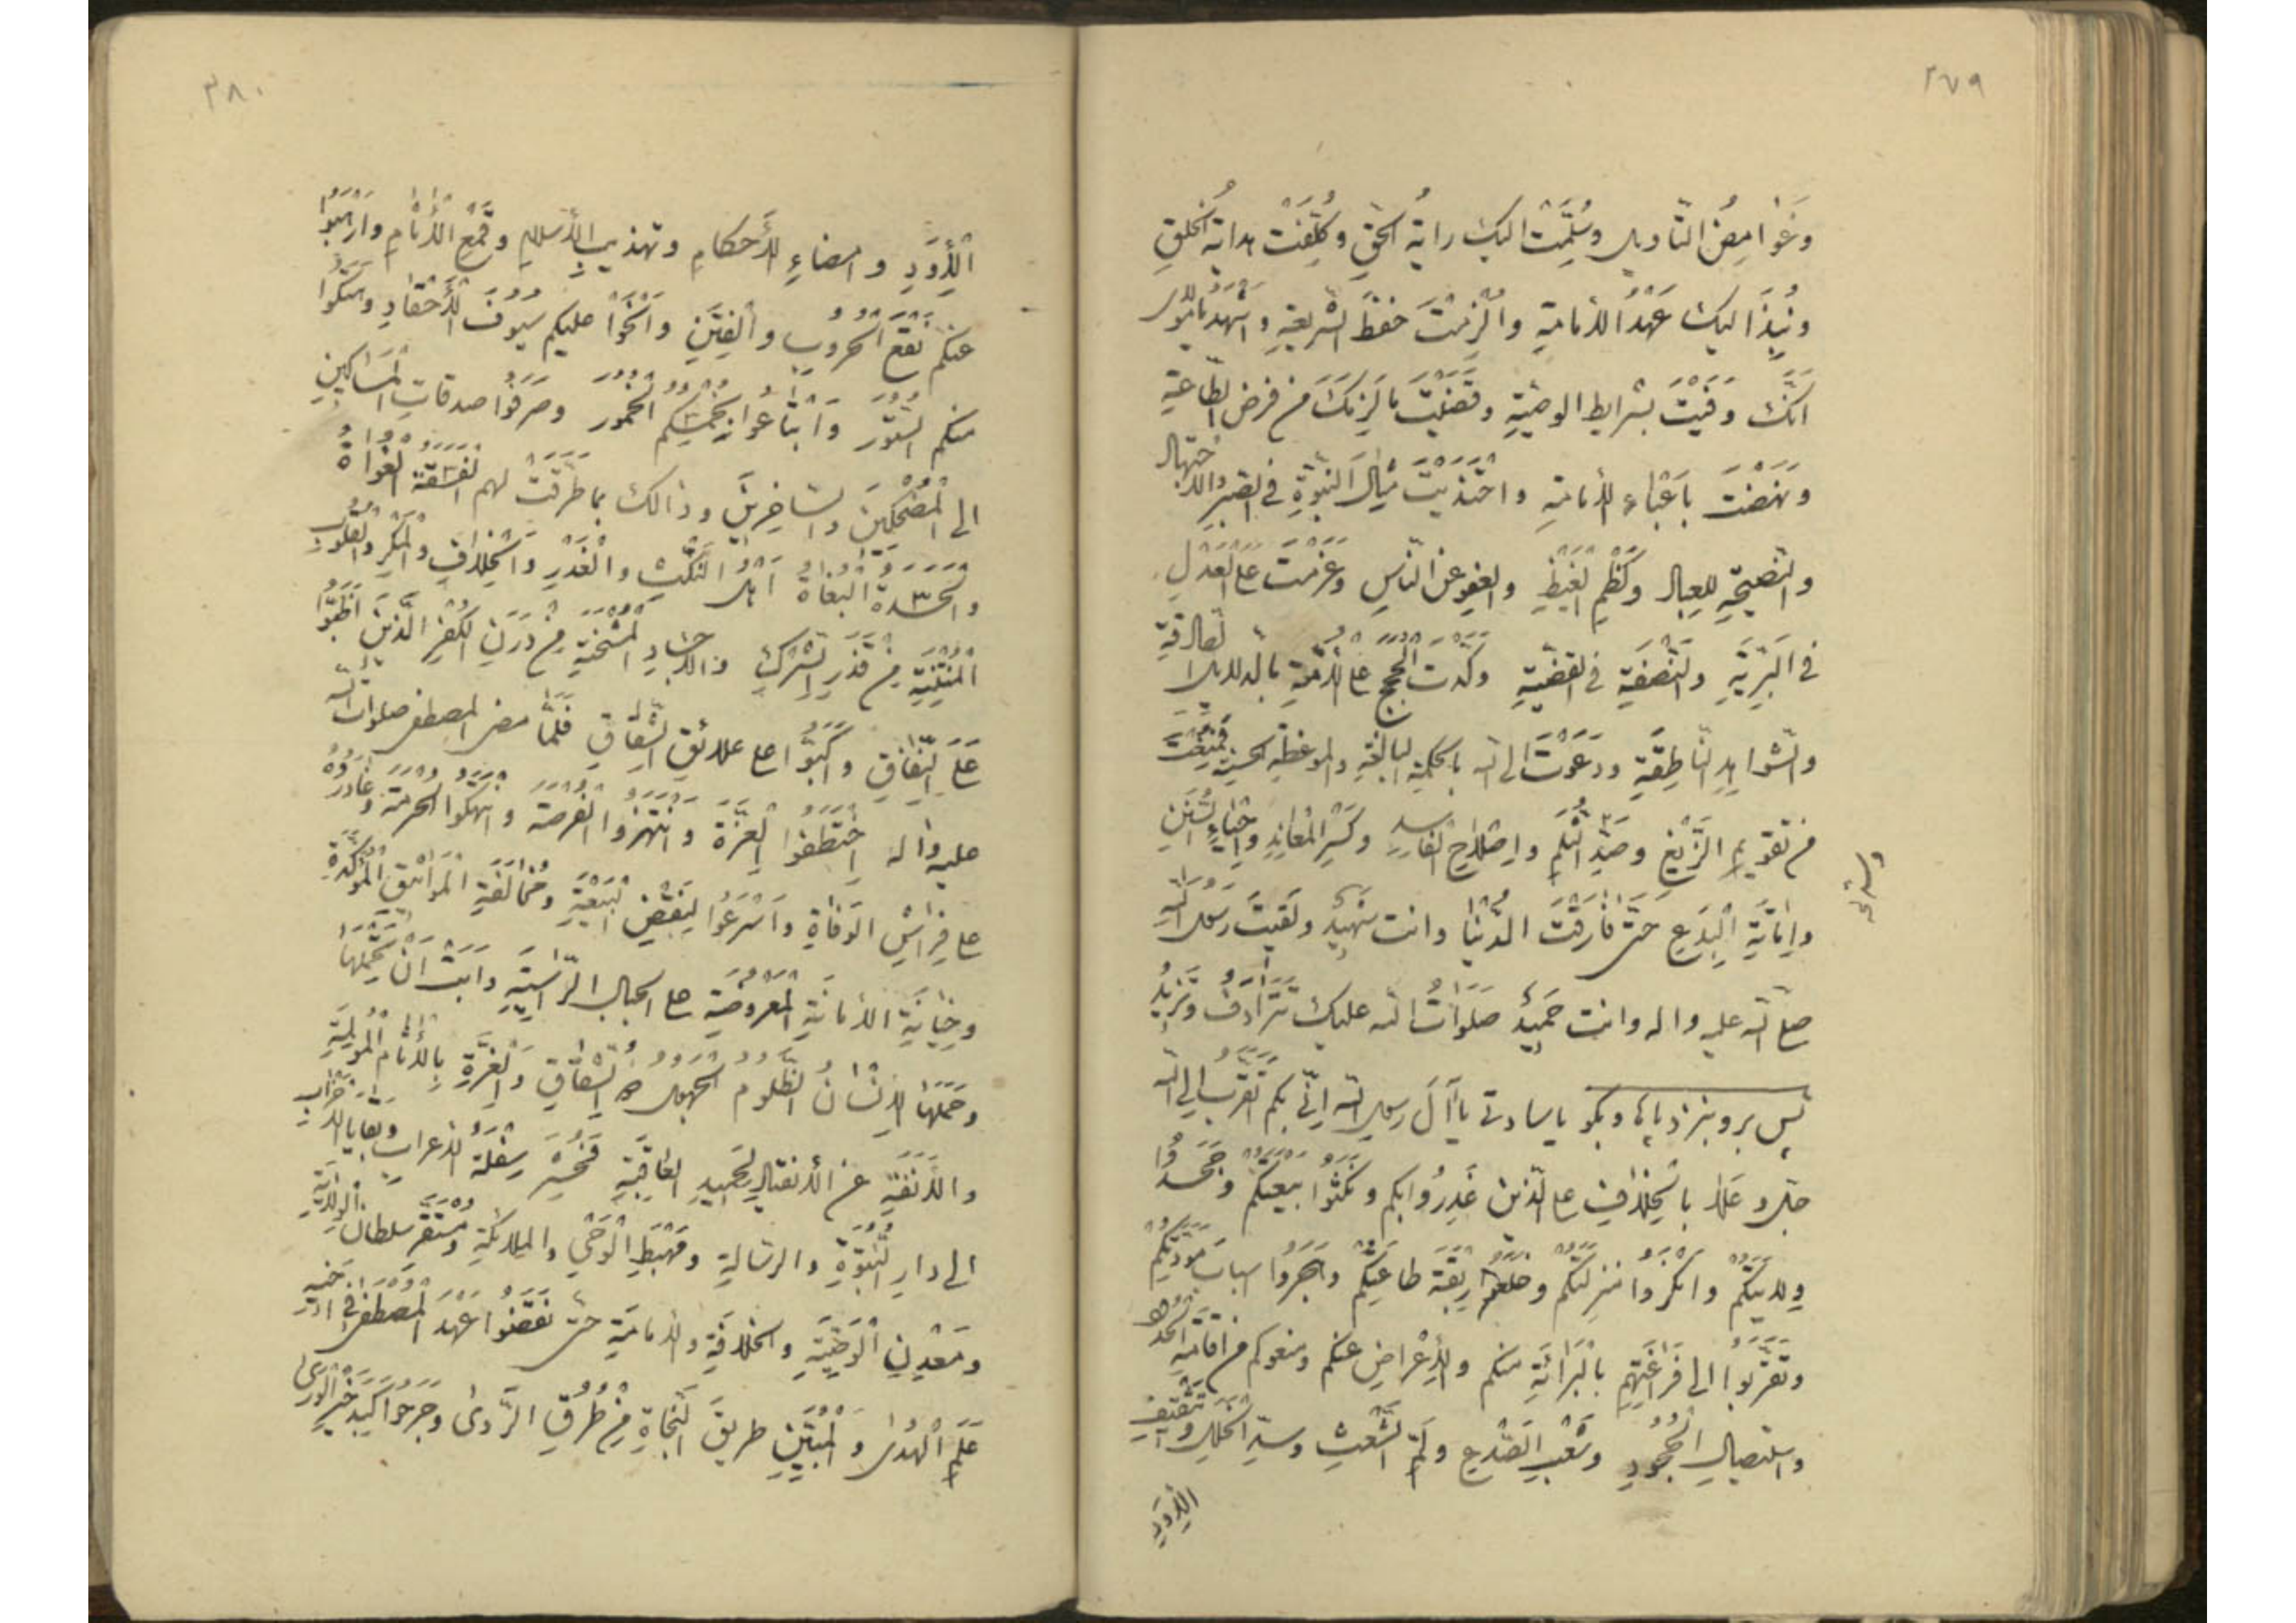 ٣٧٩
وَغَوامِضُ التّاويلِ وسُلِّمَتْ اليكَ رايةُ الحقِّ وكُلِّفتَ هداية الخلقِ
ونُبِذَ اليك عَهْدُ الأمامةِ والْزِمْتَ حفظَ الشريعةِ واشهد يا مولاى
انّكَ وَفَيْتَ بشرايط الوصيّةِ وقَضَيْتَ ما لَزِمَكَ من فرض الطّاعةِ
ونَهَضْتَ باَعْباءِ الأمامةِ واحْتَذَيْتَ مِثالَ النبوّةِ فى الصّبرِ والاجتهادِ
والنّصيحةِ للعبادِ وكَظْمِ الغَيْظِ والعفوِ عن النّاسِ وعَزَمْتَ على العَدْلِ
فى البَرِيّةِ والنَّصَفَةِ فى القضيّةِ ووكّدْتَ الحُجَجَ على الأُمّةِ بالدلايل الصّادقةِ
والشّواهدِ النّاطِقَةِ ودَعَوْتَ الى الله بالحكمةِ البالغةِ والموعظةِ الحسنةِ فَمُنِعْتَ
من تقويمِ الزَّيْغِ وسَدِّ الثُّلَمِ واِصْلاحِ الفاسدِ وكَسْرِ المُعانِدِ واِحْياءِ السُّنَنِ
واِماتَةِ الْبِدَعِ حتّى فارَقْتَ الدُّنْيا وانت شهيدٌ ولَقيتَ رسولَ اللهِ
صلّى الله عليه واله وانت حَميدٌ صَلَواتُ الله عليك تَتَرادَفُ وتَزيدُ
پس برو بنزد پاها وبگو يا سادتى يا آلَ رسولِ الله اِنّى بكم اتقرّبُ الى الله
جلّ وعلا بالخِلافِ على الّذين غَدَرُوا بكم ونَكَثُوا بَيْعَتَكُمْ وجَحَدُوا
وِلايتَكُمْ وانْكَروا منزلتَكُم وخلعوا رِبْقَةَ طاعَتِكُمْ وهَجَروا اسبابَ مَوَدَّتِكُمْ
وتَقَرَّبُوا الى فَراعِنَتِهِم بالبَرائَةِ منكم والأِعْراضِ عنكم ومنعوكم من اقامةِ الحدودِ
واستيصالِ الجُحُودِ وشَعْبِ الصَّدْعِ ولَمِّ الشَّعَثِ وسدِّ الخَلَلِ وتَثْقيفِ
الأَوَدِ
٣٨٠
الأَوَدِ وامضاءِ الأَحكامِ وتهذيبِ الأسلامِ وقَمْعِ الأثامِ وارْهَجُوا
عليكم نَقْعَ الحُروبِ والْفِتَنِ وانْحَوْا عليكم سيوفَ الأَحْقادِ وهَتَكُوا
منكم السُّتُورَ وابْتاعُوا بِخُمْسِكُمُ الخُمُورَ وصَرَفُوا صدقاتِ المساكينِ
الى الْمُضْحِكينَ والسّاخِرينَ وذالك بما طَرَّقَتْ لهم الفَسَقَةُ الغُواةُ
والحَسَدَةُ البُغاةُ اهلُ النَّكْثِ والْغَدْرِ والْخِلافِ والمَكْرِ والقلوبِ
المُنْتِنَةِ من قَذَرِ الشِّرْكِ والأجسادِ المُشْحَنَةِ من دَرَنِ الكُفْرِ الّذينَ اَضَبُّوا
عَلَى النِّفاقِ واكَبُّوا على علائقِ الشِّقاقِ فلمّا مضى المصطفى صلوات الله
عليه واله اِخْتَطَفُوا الْغِرَّةَ وانْتَهَزوا الفُرصةَ وانتهكوا الحرمة وغادَرُوهُ
على فِراشِ الوَفاةِ واَسْرَعُوا لِنَقْضِ البَيْعَةِ ومُخالَفَةِ المَواثيقِ المُؤكَّدَةِ
وخِيانَةِ الأمانَةِ المَعْروضَةِ على الجبالِ الرّاسيَةِ وابَتْ انْ تَحْمِلَها
وحَمَلَها الأِنْسانُ الظَّلومُ الجَهولُ ذو الشِّقاقِ والْغِرَّةِ بالأثام المُولِمَةِ
والأَنَفَةِ عن الأنقيادِ لِحَميدِ العاقِبَةِ فَحُشِرَ سِفْلَةُ الأعرابِ وبَقايا الأحزابِ
الى دارِ النُّبُوّةِ والرسالةِ ومَهْبَطِ الوَحْىِ والملائكةِ ومُسْتَقَرِّ سلطانِ الولايةِ
ومَعْدِنِ الوصيّةِ والخلافةِ والأمامةِ حتّى نَقَضُوا عَهْدَ المُصْطَفى فى اخيه
عَلَمِ الهُدى والمُبَيِّنِ طريقَ النَّجاةِ من طُرُقِ الرَّدى وجَرَحُوا كَبِدَ خَيْرِ الوَرى